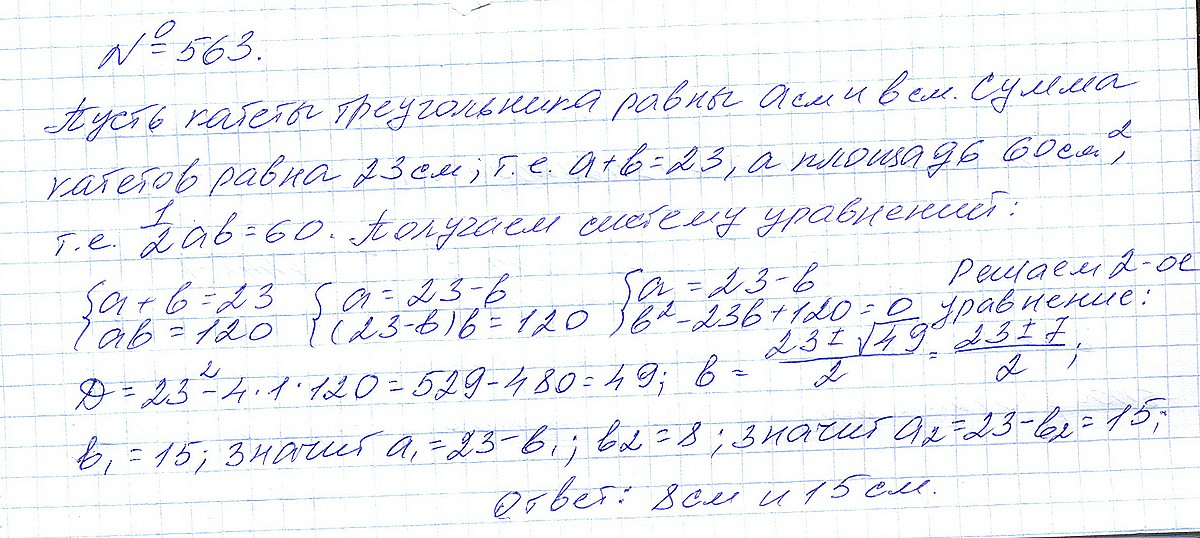 № 563.
Пусть катеты треугольника равны a см и b см. Сумма
катетов равна 23 см; т.е. a+b=23, а площадь 60 см²,
т.е. 1/2 ab=60. Получаем систему уравнений:
{a+b=23 {a=23-b {a=23-b Решаем 2-ое
{ab=120 {(23-b)b=120 {b²-23b+120=0 уравнение:
D=23²-4·1·120=529-480=49; b=(23±√49)/2=(23±7)/2;
b₁=15; значит a₁=23-b₁; b2=8; значит a₂=23-b₂=15;
Ответ: 8 см и 15 см.